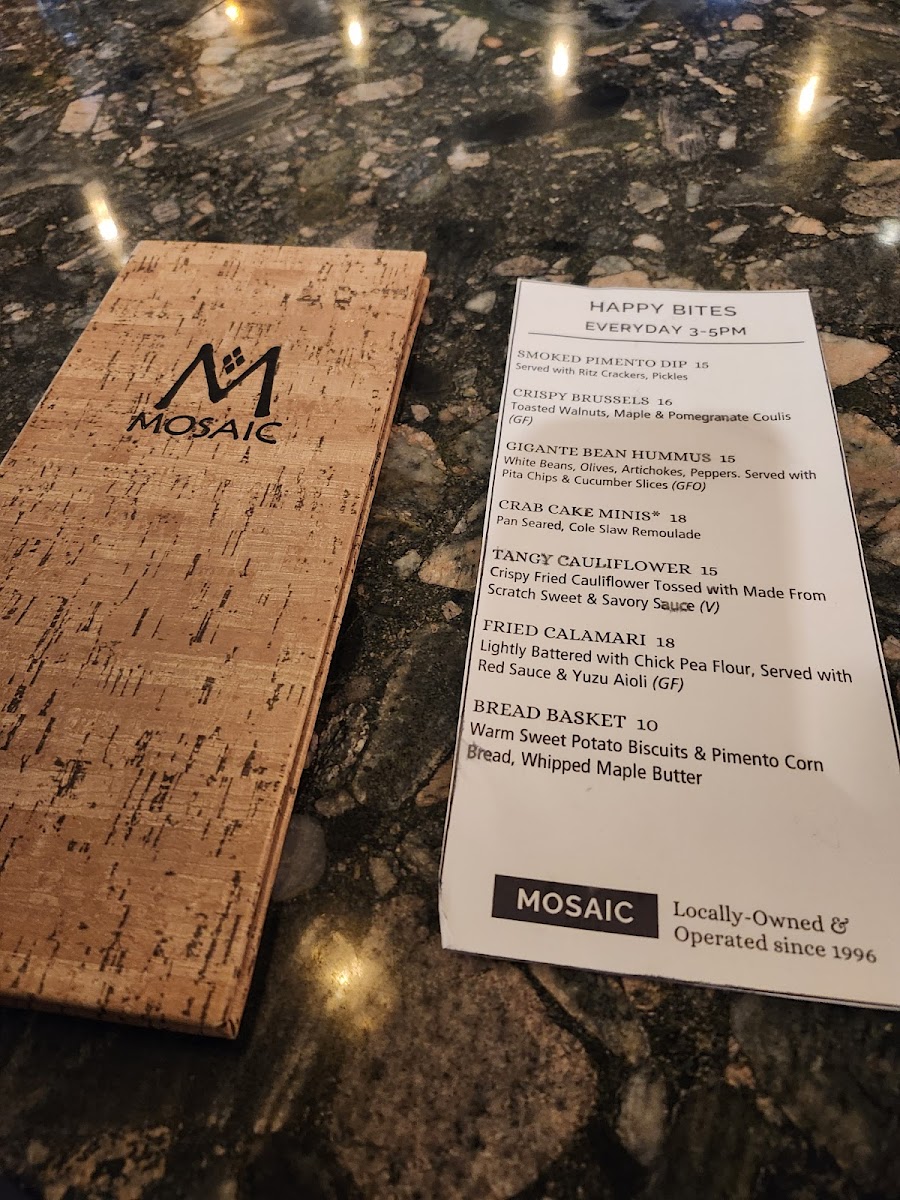 MOSAIC
HAPPY BITES
EVERYDAY 3-5PM
SMOKED PIMENTO DIP 15
Served with Ritz Crackers, Pickles
CRISPY BRUSSELS 16
Toasted Walnuts, Maple & Pomegranate Coulis
(GF)
GIGANTE BEAN HUMMUS 15
White Beans, Olives, Artichokes, Peppers. Served with
Pita Chips & Cucumber Slices (GFO)
CRAB CAKE MINIS* 18
Pan Seared, Cole Slaw Remoulade
TANGY CAULIFLOWER 15
Crispy Fried Cauliflower Tossed with Made From
Scratch Sweet & Savory Sauce (V)
FRIED CALAMARI 18
Lightly Battered with Chick Pea Flour, Served with
Red Sauce & Yuzu Aioli (GF)
BREAD BASKET 10
Warm Sweet Potato Biscuits & Pimento Corn
Bread, Whipped Maple Butter
MOSAIC
Locally-Owned &
Operated since 1996